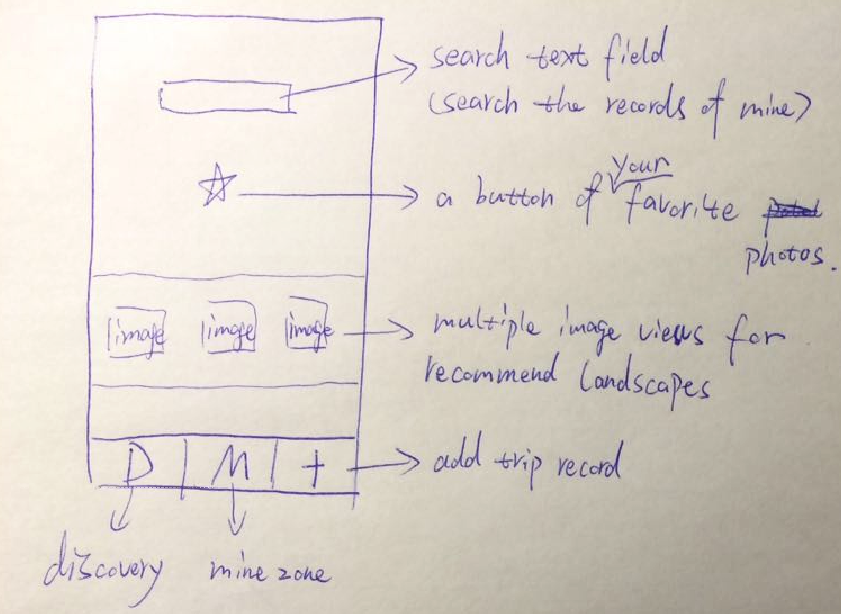 search text field
(search the records of mine)
your
a button of favorite
photos.
image image image
multiple image views for
recommend landscapes
D M +
add trip record
discovery mine zone